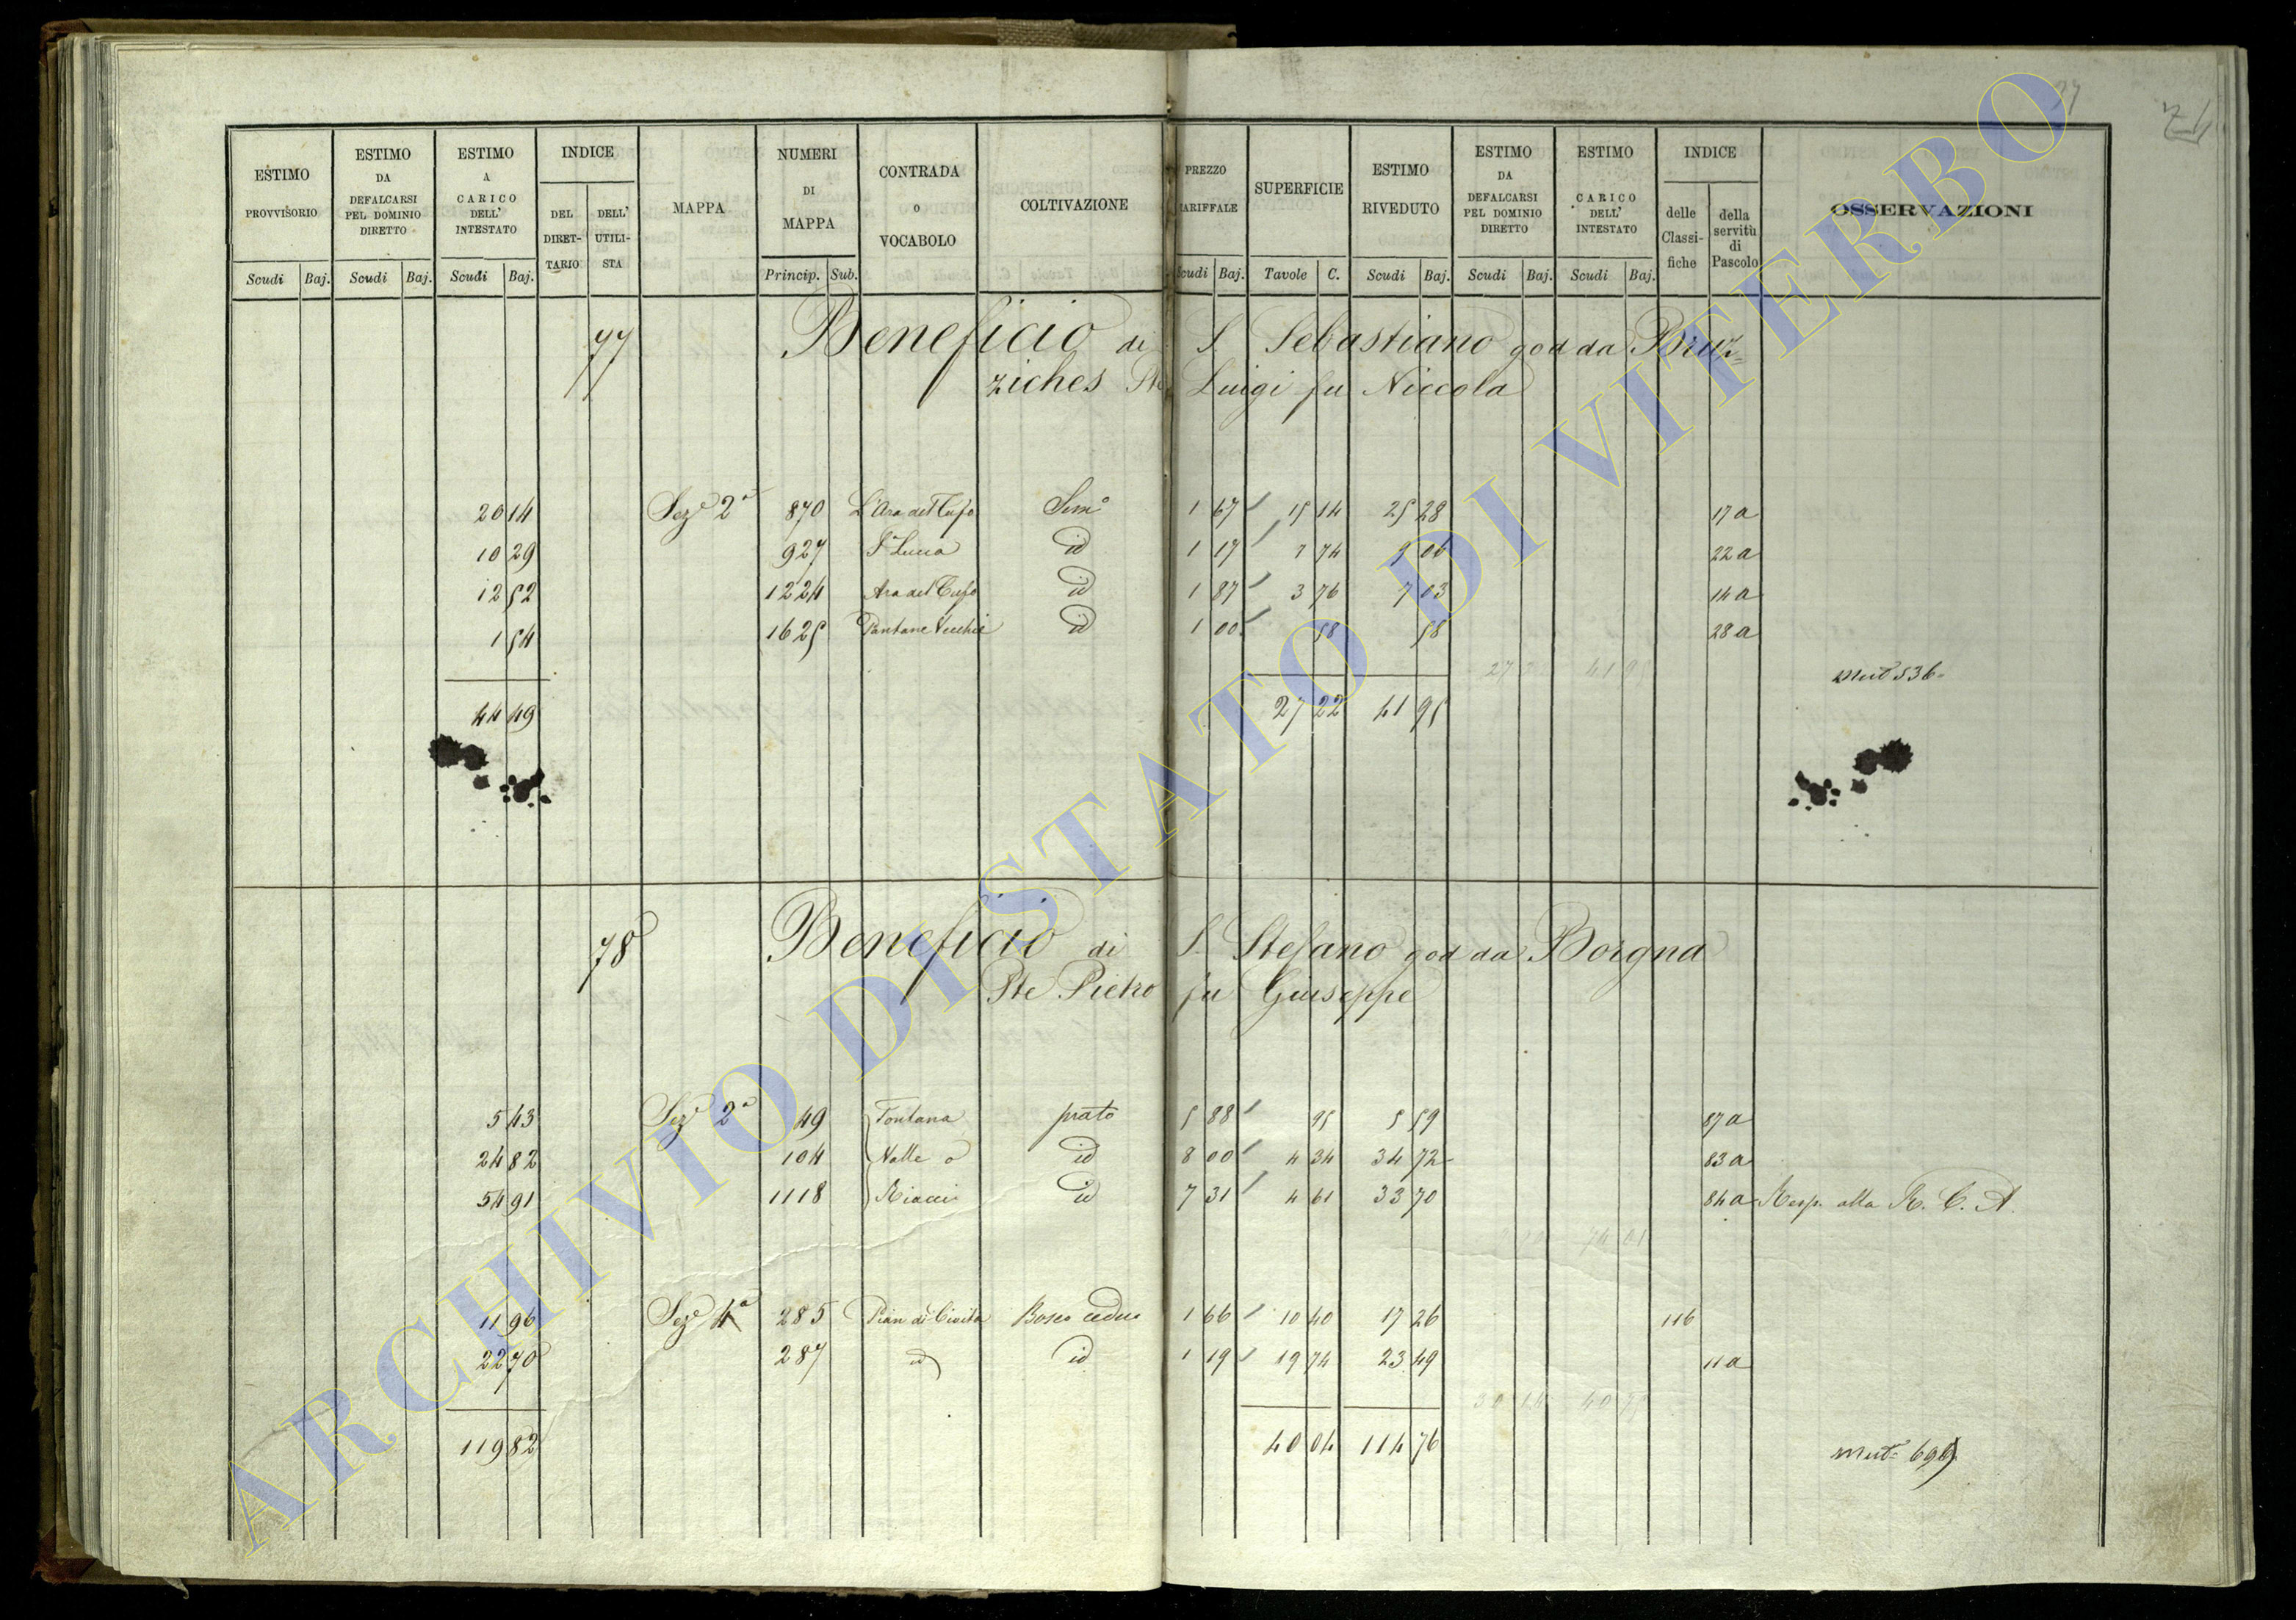 74
ESTIMO PROVVISORIO Scudi Baj. ESTIMO DA DEFALCARSI PEL DOMINIO DIRETTO Scudi Baj. ESTIMO A CARICO DELL' INTESTATO Scudi Baj. INDICE DEL DIRET-TARIO DELL' UTILI-STA MAPPA NUMERI DI MAPPA Princip. Sub. CONTRADA O VOCABOLO COLTIVAZIONE PREZZO TARIFFALE Scudi Baj. SUPERFICIE Tavole C. ESTIMO RIVEDUTO Scudi Baj. ESTIMO DA DEFALCARSI PEL DOMINIO DIRETTO Scudi Baj. ESTIMO A CARICO DELL' INTESTATO Scudi Baj. INDICE delle Classi-fiche della servitù di Pascolo OSSERVAZIONI
77 Beneficio di S Sebastiano god da Bruz=
ziches Pte Luigi fu Niccola
20 14 Seze 2a 870 L'Ara del Tufo Semo 1 67 15 14 25 28 17 a
10 29 927 Sa Lucia id 1 17 7 74 9 06 22 a
12 52 1224 Ara del Tufo id 1 87 3 76 7 03 14 a
1 54 1625 Pantane Vecchie id 1 00 58 58 28 a
41 95 Mut 536
44 49 27 22 41 95
78 Beneficio di S. Stefano god da Borgna
Pte Pietro fu Giuseppe
5 43 Seze 2a 49 Fontana prato 5 88 95 5 59 87 a
24 82 104 Valle o id 8 00 4 34 34 72 83 a
54 91 1118 Riacci id 7 31 4 61 33 70 84 a Resp. alla R. C. A.
74 01
11 96 Seze 4a 285 Pian di Civita Bosco ceduo 1 66 10 40 17 26 116
22 70 287 id id 1 19 19 74 23 49 11 a
30 14 40 75
119 82 40 04 114 76 Mut=
ARCHIVIO DI STATO DI VITERBO